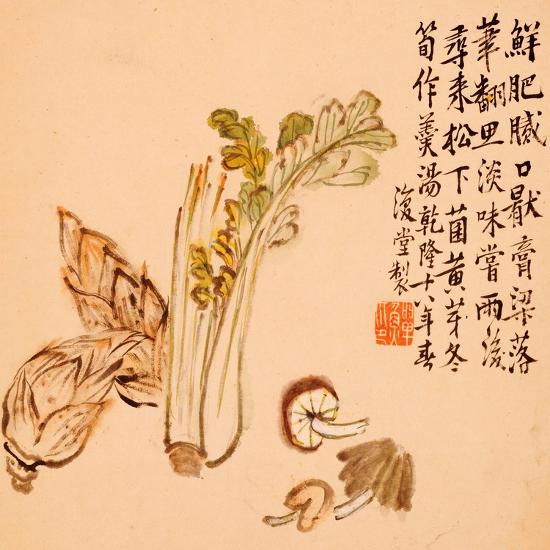 鮮肥膩口厭膏粱落
華翻思淡味嘗雨後
尋來松下菌黃芽冬
筍作羹湯乾隆十八年春
復堂製